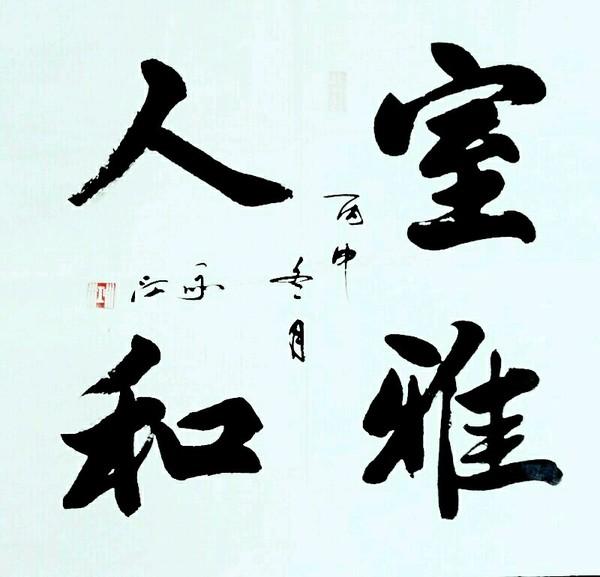 室雅
人和
丙申
冬月